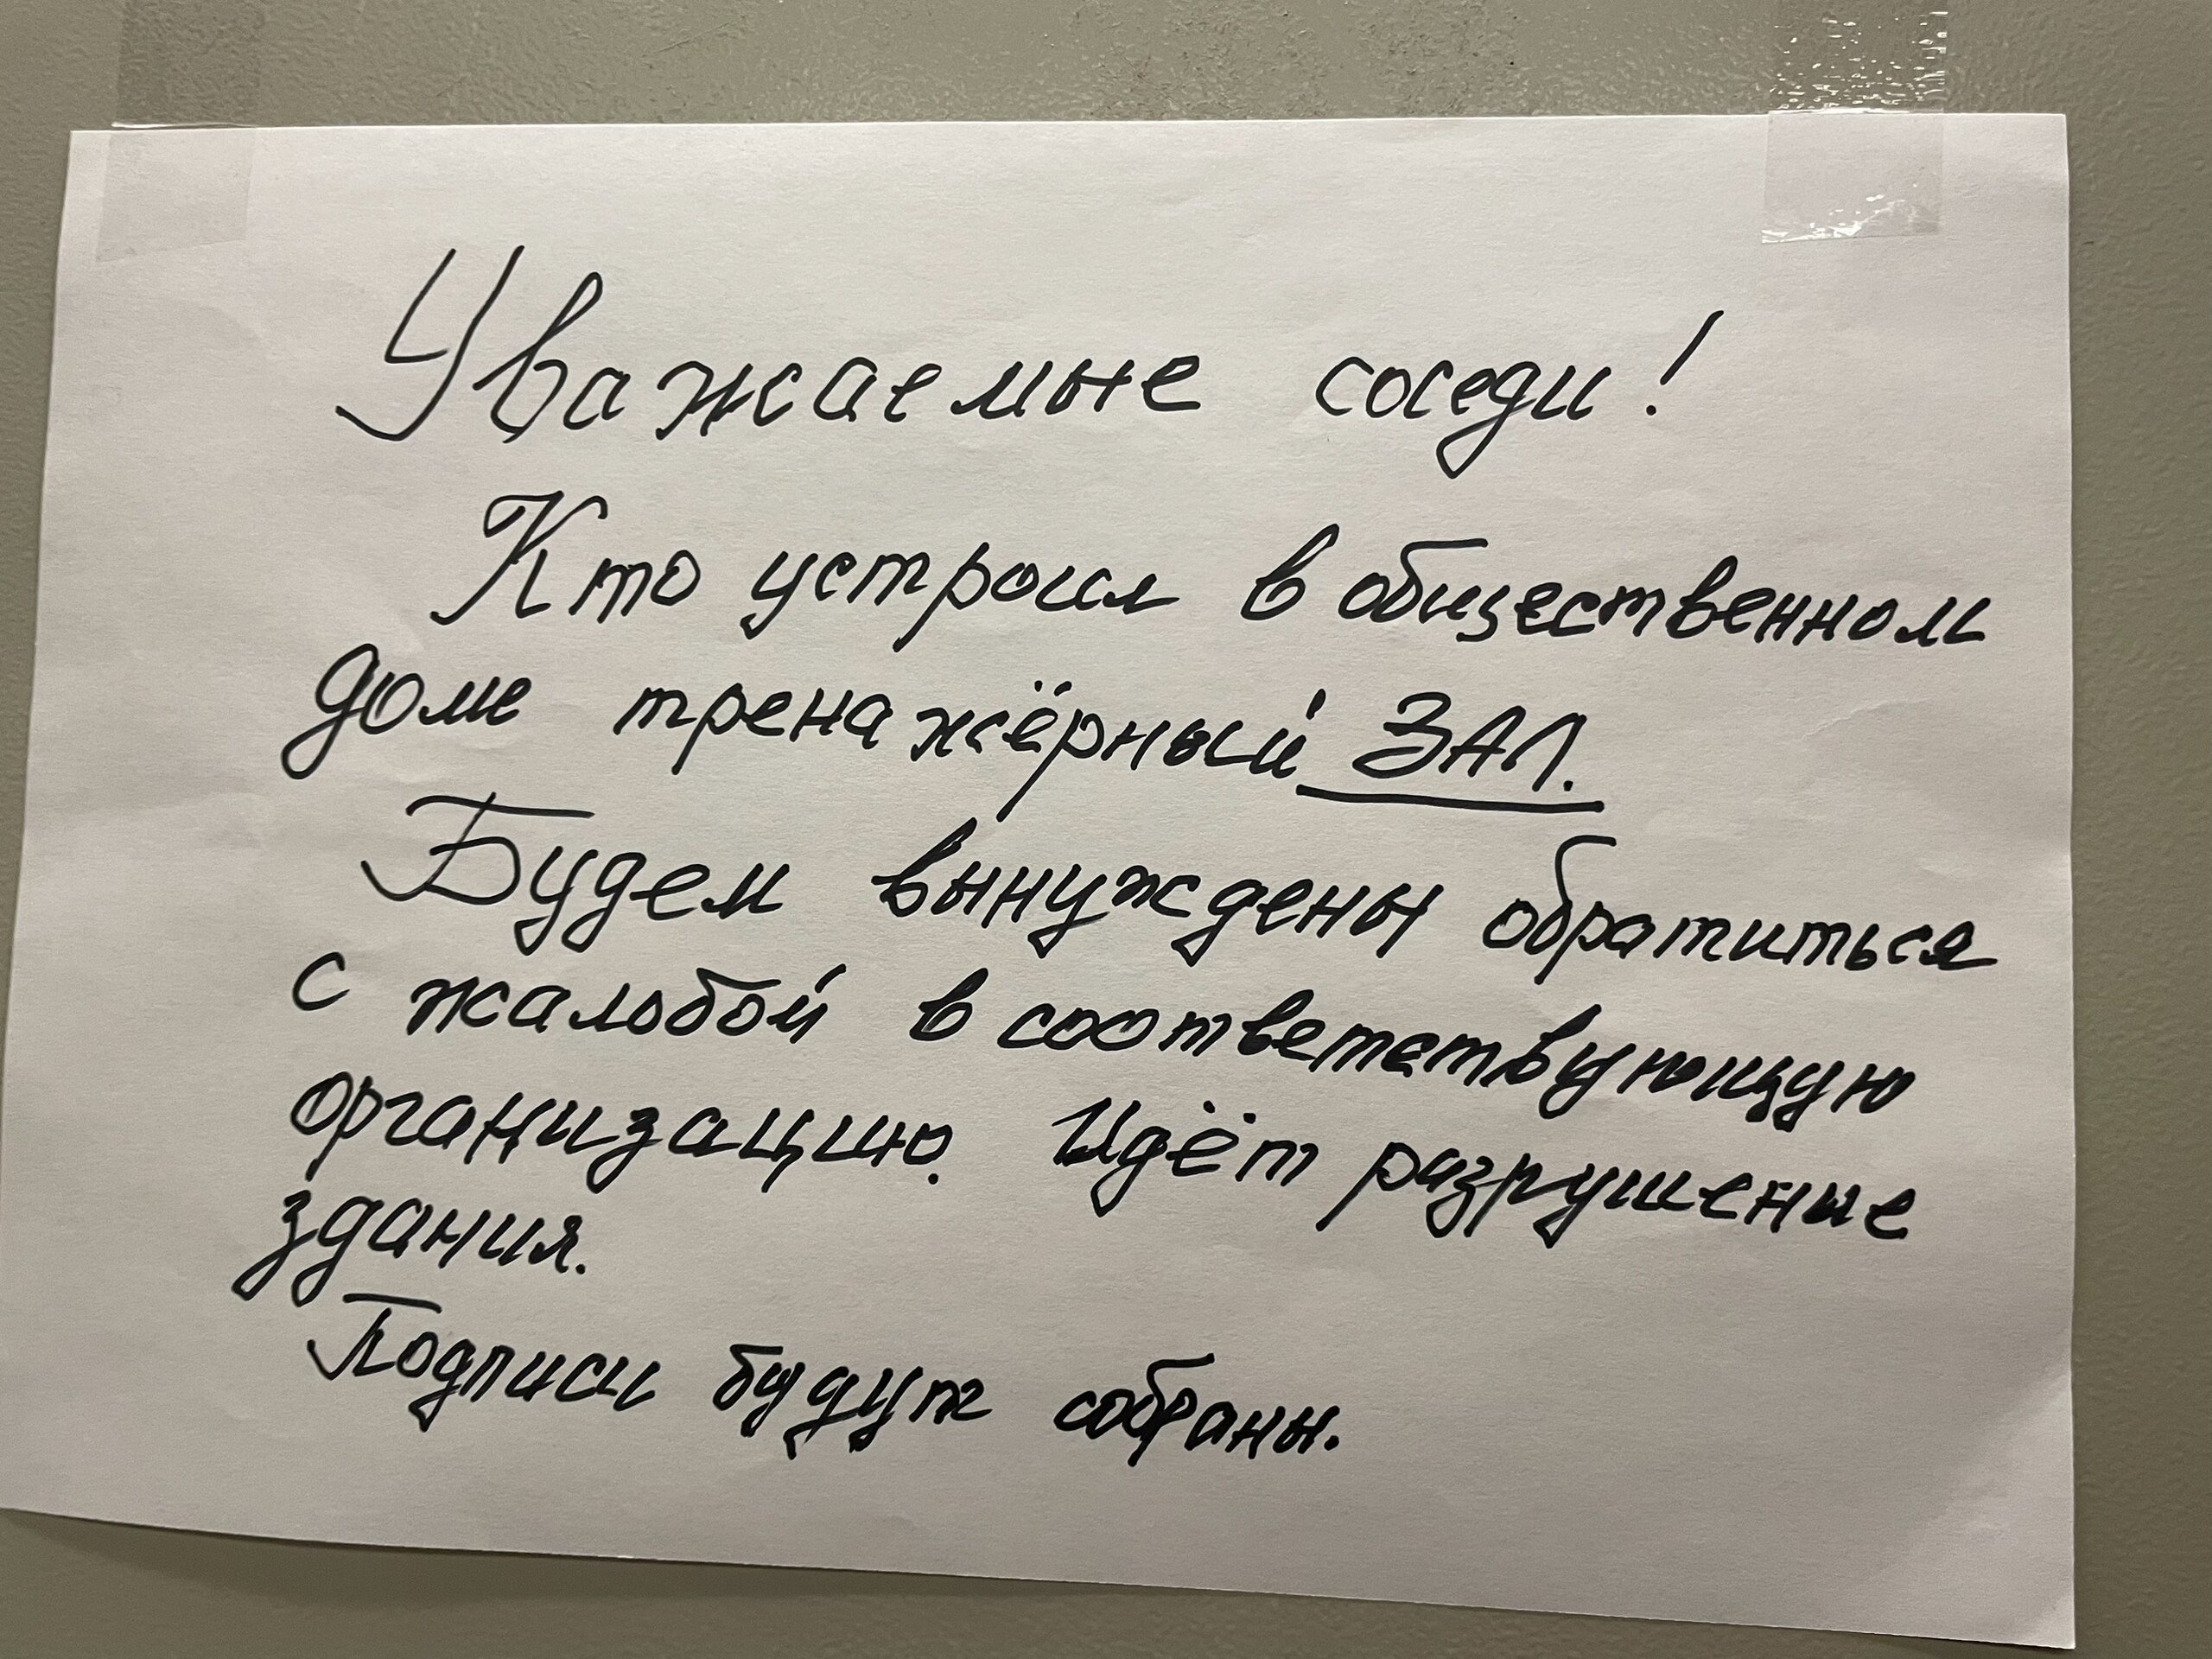 Уважаемые соседи!
Кто устроил в общественном
доме тренажёрный ЗАЛ.
Будем вынуждены обратиться
с жалобой в соответствующую
организацию. Идёт разрушение
здания.
Подписи будут собраны.